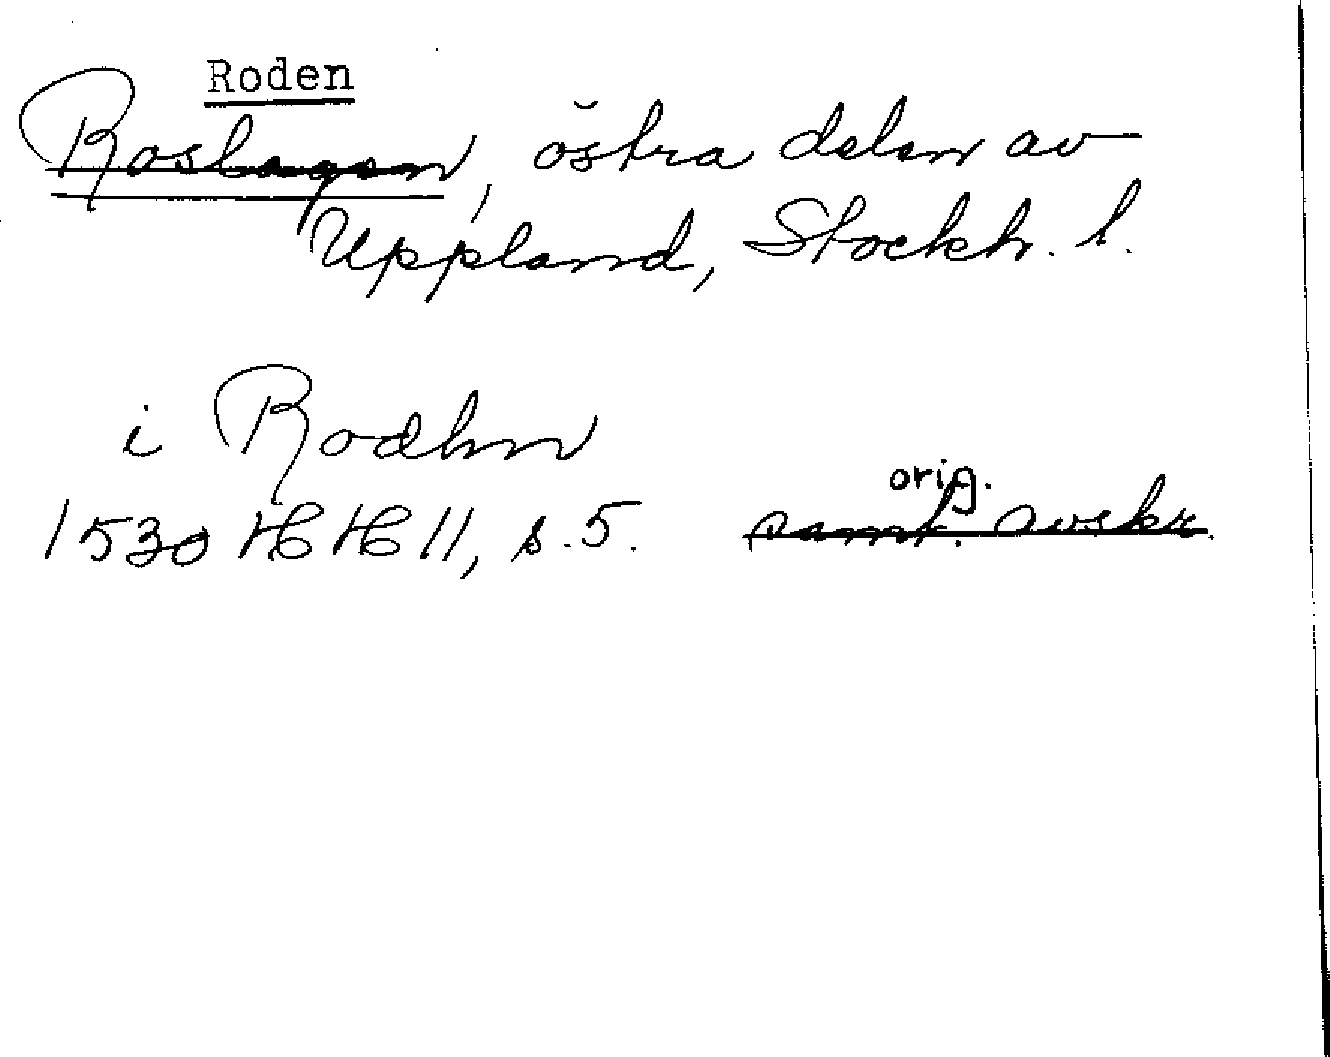 Roden
Roslagen, östra delen av
Uppland, Stockh. l.
i Rodhn
orig.
1530 HH 11, s.5. samt. avskr.